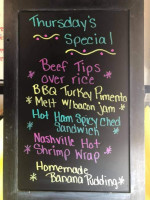 Thursday's
Special
Beef Tips
over rice
BBQ Turkey Pimento
* Melt w/bacon jam *
Hot Ham Spicy Ched
Sandwich
Nashville Hot
* Shrimp Wrap *
Homemade
* Banana Pudding *